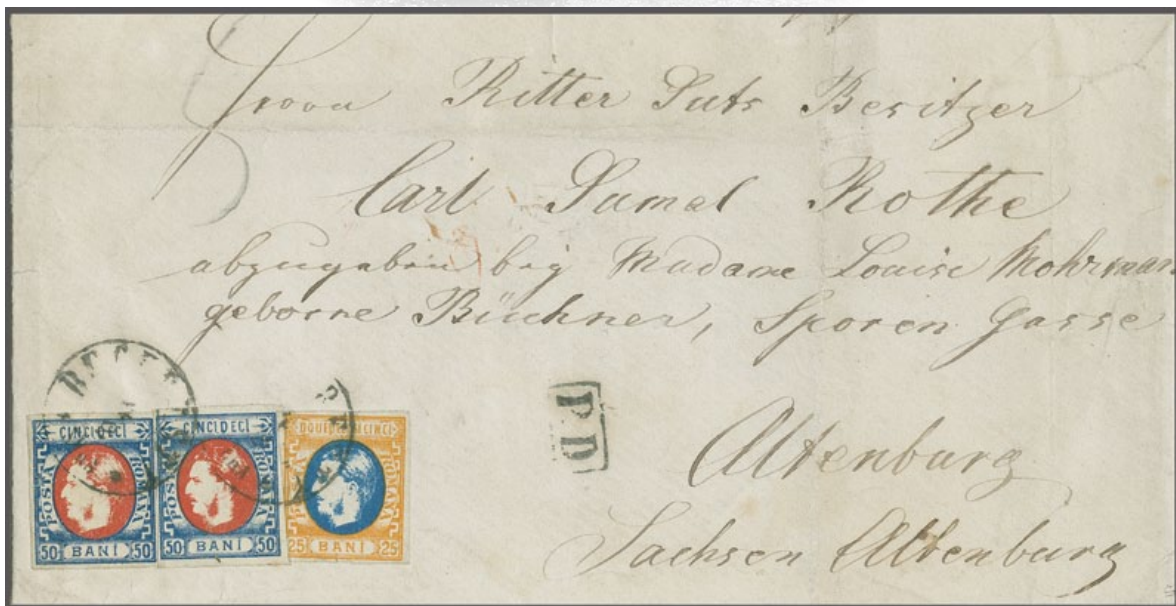 Herrn Ritter Guts Besitzer
Carl Samel Rothe
abzugeben bey Madame Louise Mohrman
geborne Büchner, Sporen Gasse
Altenburg
Sachsen Altenburg
P.D.
CINCI DECI
POSTA
ROMANA
50 BANI 50
CINCI DECI
POSTA
ROMANA
50 BANI 50
POSTA
ROMANA
25 BANI 25